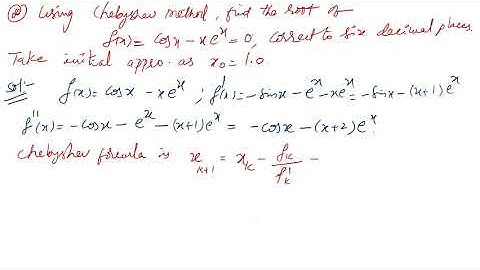 ② Using Chebyshev method, find the root of
f(x) = cosx - xeˣ = 0, correct to six decimal places.
Take initial appro. as x₀ = 1.0.
Sol:- f(x) = cosx - xeˣ ; f'(x) = -sinx - eˣ - xeˣ = -sinx - (x+1)eˣ
f''(x) = -cosx - eˣ - (x+1)eˣ = -cosx - (x+2)eˣ.
Chebyshev formula is x_{k+1} = x_k - f_k/f'_k -